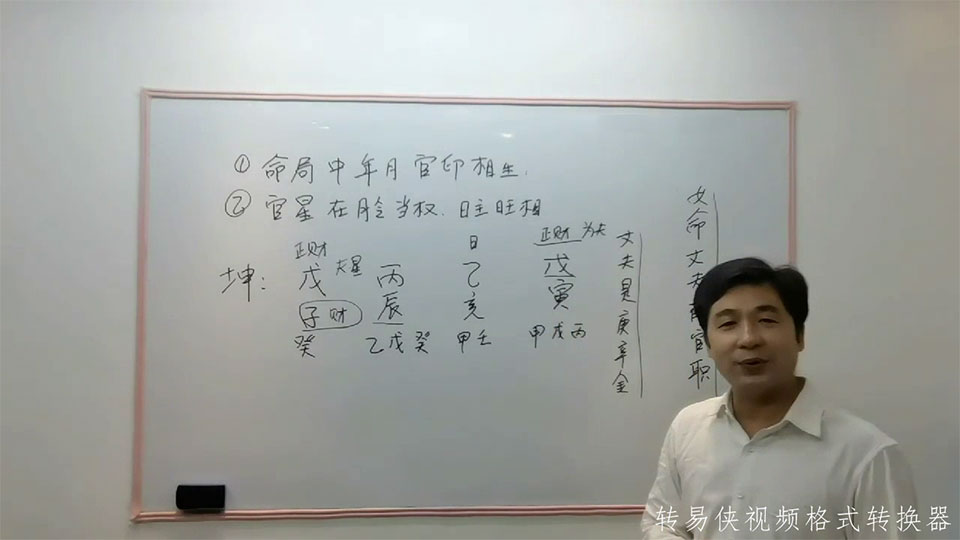 ① 命局中年月官印相生.
② 官星在脸当权.日主旺相
正财 日 正财 为夫
坤: 戊 夫星 丙 乙 戊
子财 辰 亥 寅
癸 乙戊癸 甲壬 甲戊丙
丈夫是庚辛金
女命丈夫
官职
转易侠视频格式转换器